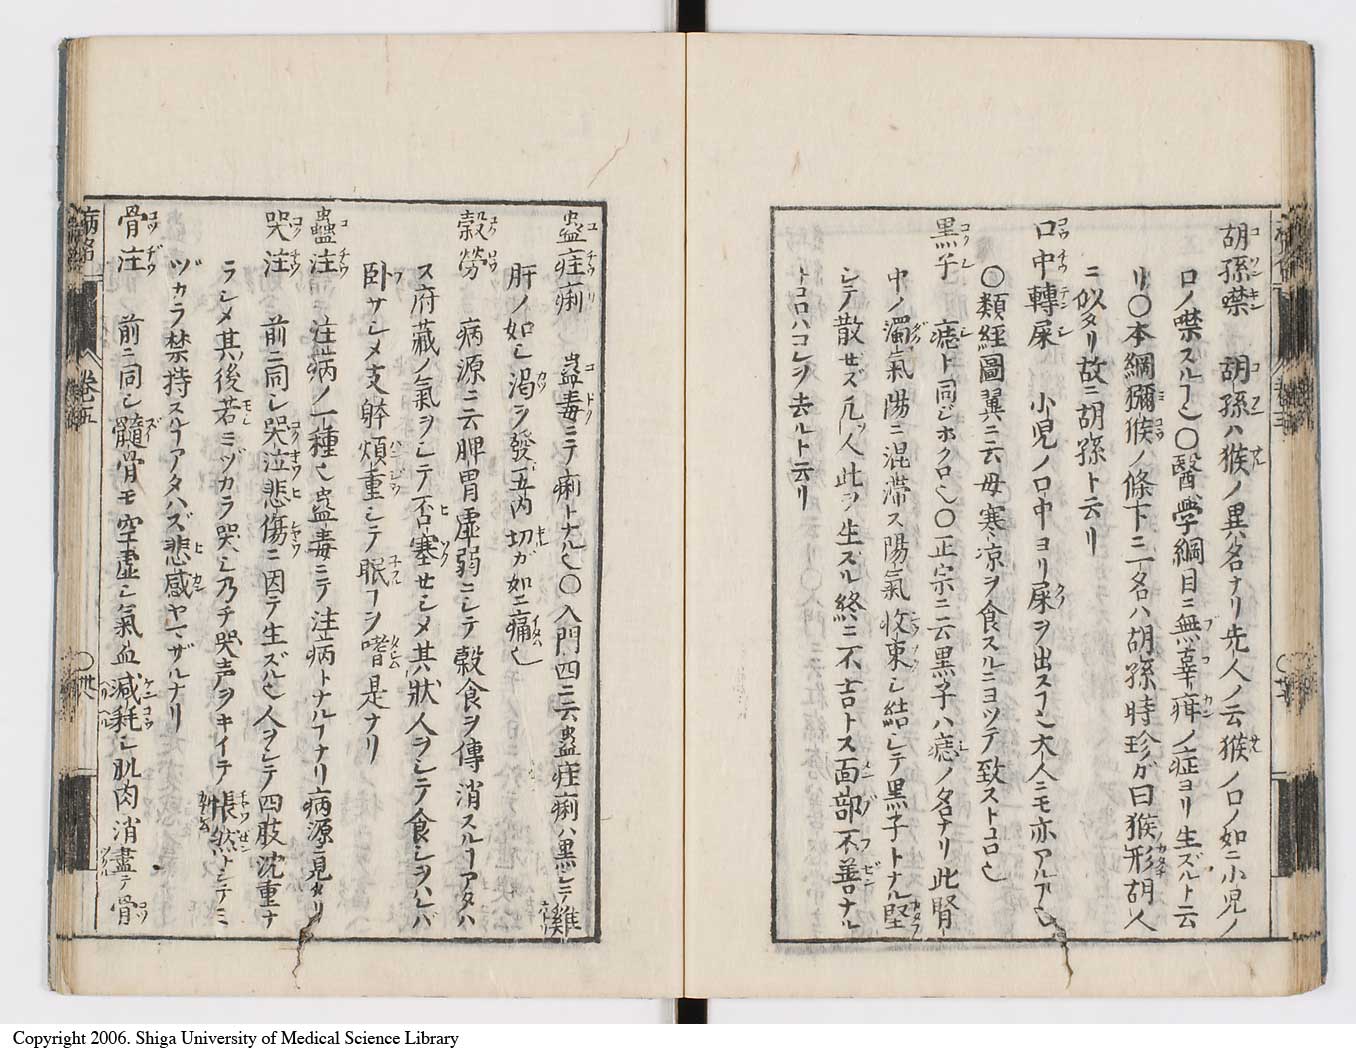 胡孫噤 胡孫ハ猴ノ異名ナリ先人ノ云猴ノ口ノ如ニ小児ノ
口ノ噤スルヿ也〇醫學綱目ニ無辜疳ノ症ヨリ生ズルト云
リ〇本綱獼猴ノ條下ニ一名ハ胡孫時珍ガ曰猴形胡人
ニ似タリ故ニ胡孫ト云リ
口中轉屎 小児ノ口中ヨリ屎ヲ出スヿ也大人ニモ亦アルヿ也
〇類經圖翼ニ云母寒凉ヲ食スルニヨツテ致ストコロ也
黒子 痣ト同ジホクロ也〇正宗ニ云黒子ハ痣ノ名ナリ此腎
中ノ濁氣陽ニ混滞ス陽氣收束シ結シテ黒子トナル堅
シテ散セズ凡ソ人此ヲ生スル終ニ不吉トス面部不善ナル
トコロハコレヲ去ルト云リ
蠱疰痢 蠱毒ニテ痢トナル也〇入門四ニ云蠱疰痢ハ黒シテ雞
肝ノ如シ渇ヲ發五内切ガ如ニ痛也
穀勞 病源ニ云脾胃虚弱ニシテ穀食ヲ傳消スルヿアタハ
ス府藏ノ氣ヲシテ否塞セシメ其狀人ヲシテ食シヲハレバ
卧サシメ支躰煩重シテ眠ヿヲ嗜是ナリ
蠱注 注病ノ一種也蠱毒ニテ注病トナルヿナリ病源ニ見タリ
哭注 前ニ同シ哭泣悲傷ニ因テ生ズル也人ヲシテ四肢沈重ナ
ラシメ其後若ミヅカラ哭シ乃チ哭声ヲキイテ悵然トシテミ
ヅカラ禁持スルヿアタハズ悲感ヤマザルナリ
骨注 前ニ同シ髓骨モ空虚シ氣血減耗シ肌肉消盡テ骨
病名
卷五
〇卅
Copyright 2006. Shiga University of Medical Science Library